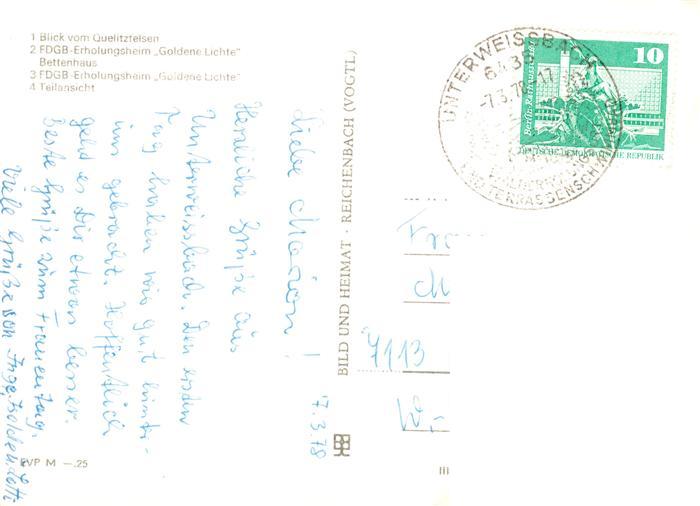 1 Blick vom Quelitzfelsen
2 FDGB-Erholungsheim „Goldene Lichte"
Bettenhaus
3 FDGB-Erholungsheim „Goldene Lichte"
4 Teilansicht
7.3.78
Liebe Marion!
Herzliche Grüße aus
Unterweissbach. Den ersten
Tag haben wir gut hinter-
uns gebracht. Hoffentlich
geht es Dir etwas besser.
Beste Grüße zum Frauentag.
Viele Grüße von Inge,
EVP M —.25
BILD UND HEIMAT · REICHENBACH (VOGTL)
III
UNTERWEISSBACH
6438
-7.3.78-17
Berlin, Rathausstraße
10
DEUTSCHE DEMOKRATISCHE REPUBLIK
Fra
M
7113
W.-